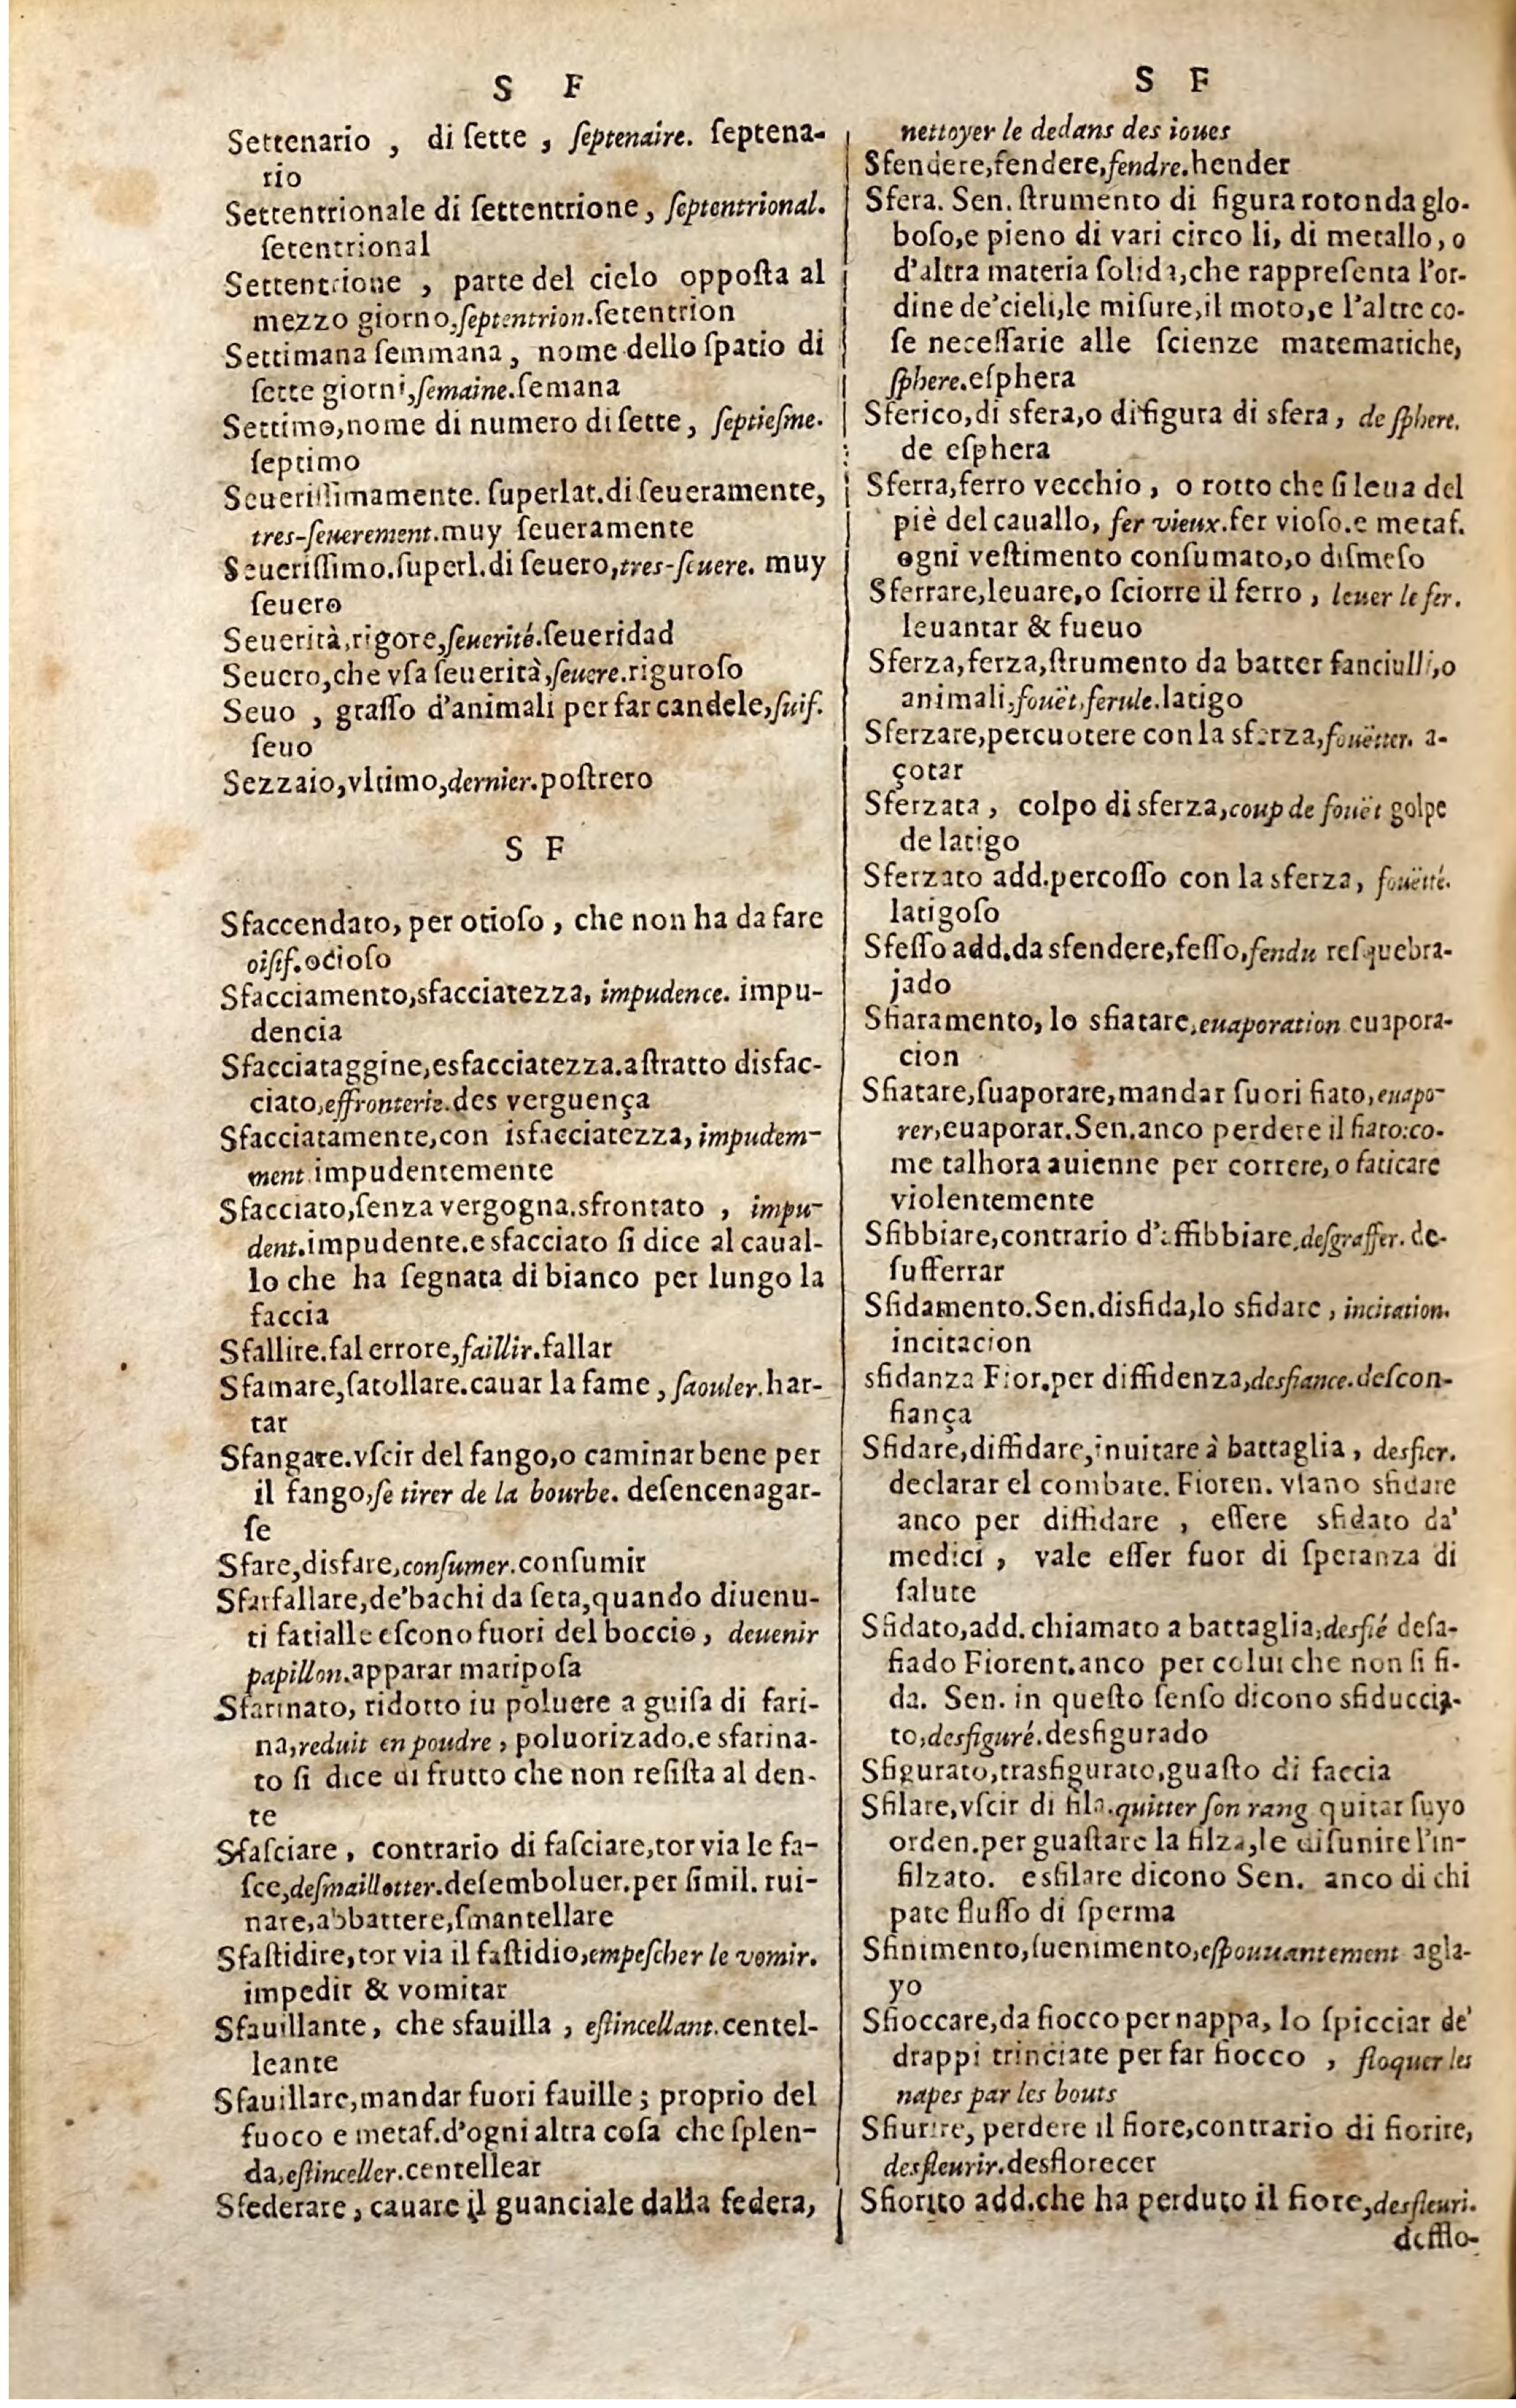 S F
Settenario , di sette , ſeptenaire. septena-
rio
Settentrionale di ſettentrione , ſeptentrional.
ſetentrional
Settentrione , parte del cielo oppoſta al
mezzo giorno,ſeptentrion.ſetentrion
Settimana ſemmana , nome dello ſpatio di
ſette giorni,ſemaine.ſemana
Settimo,nome di numero di ſette , ſeptieſme.
ſeptimo
Seueriſſimamente. ſuperlat.di ſeueramente,
tres-ſeuerement.muy ſeueramente
Seueriſſimo.ſuperl.di ſeuero,tres-ſeuere. muy
ſeuero
Seuerità,rigore,ſeuerité.ſeueridad
Seuero,che vſa ſeuerità,ſeuere.riguroſo
Seuo , graſſo d'animali per far candele,ſuif.
ſeuo
Sezzaio,vltimo,dernier.poſtrero
S F
Sfaccendato, per otioſo , che non ha da fare
oiſif.ocioſo
Sfacciamento,sfacciatezza, impudence. impu-
dencia
Sfacciataggine,esfacciatezza.aſtratto disfac-
ciato,effronterie.des verguença
Sfacciatamente,con isfacciatezza, impudem-
ment.impudentemente
Sfacciato,ſenza vergogna.sfrontato , impu-
dent.impudente.e sfacciato ſi dice al caual-
lo che ha ſegnata di bianco per lungo la
faccia
Sfallire.fal errore,faillir.fallar
Sfamare,ſatollare.cauar la fame , ſaouler.har-
tar
Sfangare.vſcir del fango,o caminar bene per
il fango,ſe tirer de la bourbe. deſencenagar-
ſe
Sfare,disfare,conſumer.conſumir
Sfarfallare,de'bachi da ſeta,quando diuenu-
ti fatialle eſcono fuori del boccio , deuenir
papillon.apparar maripoſa
Sfarinato, ridotto iu poluere a guiſa di fari-
na,reduit en poudre , poluorizado.e sfarina-
to ſi dice di frutto che non reſiſta al den-
te
Sfaſciare , contrario di faſciare,tor via le fa-
ſce,deſmaillotter.deſemboluer.per ſimil. rui-
nare,abbattere,ſmantellare
Sfaſtidire,tor via il faſtidio,empeſcher le vomir.
impedir & vomitar
Sfauillante, che sfauilla , eſtincellant.centel-
leante
Sfauillare,mandar fuori fauille ; proprio del
fuoco e metaf.d'ogni altra coſa che ſplen-
da,eſtinceller.centellear
Sfederare , cauare il guanciale dalla federa,
S F
nettoyer le dedans des ioues
Sfendere,fendere,fendre.hender
Sfera. Sen. ſtrumento di figura rotonda glo-
boſo,e pieno di vari circo li, di metallo, o
d'altra materia ſolida,che rappreſenta l'or-
dine de'cieli,le miſure,il moto,e l'altre co-
ſe neceſſarie alle ſcienze matematiche,
ſphere.eſphera
Sferico,di sfera,o di figura di sfera , de ſphere.
de eſphera
Sferra,ferro vecchio , o rotto che ſi leua del
piè del cauallo, fer vieux.fer vioſo.e metaf.
ogni veſtimento conſumato,o diſmeſo
Sferrare,leuare,o ſciorre il ferro , leuer le fer.
leuantar & fueuo
Sferza,ferza,ſtrumento da batter fanciulli,o
animali,fouët,ferule.latigo
Sferzare,percuotere con la sferza,fouëtter. a-
çotar
Sferzata , colpo di sferza,coup de fouët golpe
de latigo
Sferzato add.percoſſo con la sferza, fouëtté.
latigoſo
Sfeſſo add.da sfendere,feſſo,fendu reſquebra-
jado
Sfiaramento, lo sfiatare,euaporation euapora-
cion
Sfiatare,ſuaporare,mandar fuori fiato,euapo-
rer,euaporar.Sen.anco perdere il fiato:co-
me talhora auienne per correre, o faticare
violentemente
Sfibbiare,contrario d'affibbiare,deſgraffer. de-
ſufferrar
Sfidamento.Sen.disfida,lo sfidare , incitation.
incitacion
sfidanza Fior.per diffidenza,desfiance.deſcon-
fiança
Sfidare,diffidare,inuitare à battaglia , desfier.
declarar el combate. Fioren. vſano sfidare
anco per diffidare , eſſere sfidato da'
medici , vale eſſer fuor di ſperanza di
ſalute
Sfidato,add. chiamato a battaglia,desfié deſa-
fiado Fiorent.anco per colui che non ſi fi-
da. Sen. in queſto ſenſo dicono sfiduccia-
to,desfiguré.desfigurado
Sfigurato,trasfigurato,guaſto di faccia
Sfilare,vſcir di fila.quitter ſon rang quitar ſuyo
orden.per guaſtare la filza,le diſunire l'in-
filzato. e sfilare dicono Sen. anco di chi
pate fluſſo di ſperma
Sfinimento,ſuenimento,eſpouuantement agla-
yo
Sfioccare,da fiocco per nappa, lo ſpicciar de'
drappi trinciate per far fiocco , floquer les
napes par les bouts
Sfiurire, perdere il fiore,contrario di fiorire,
desfleurir.desflorecer
Sfiorito add.che ha perduto il fiore,desfleuri.
deſflo-